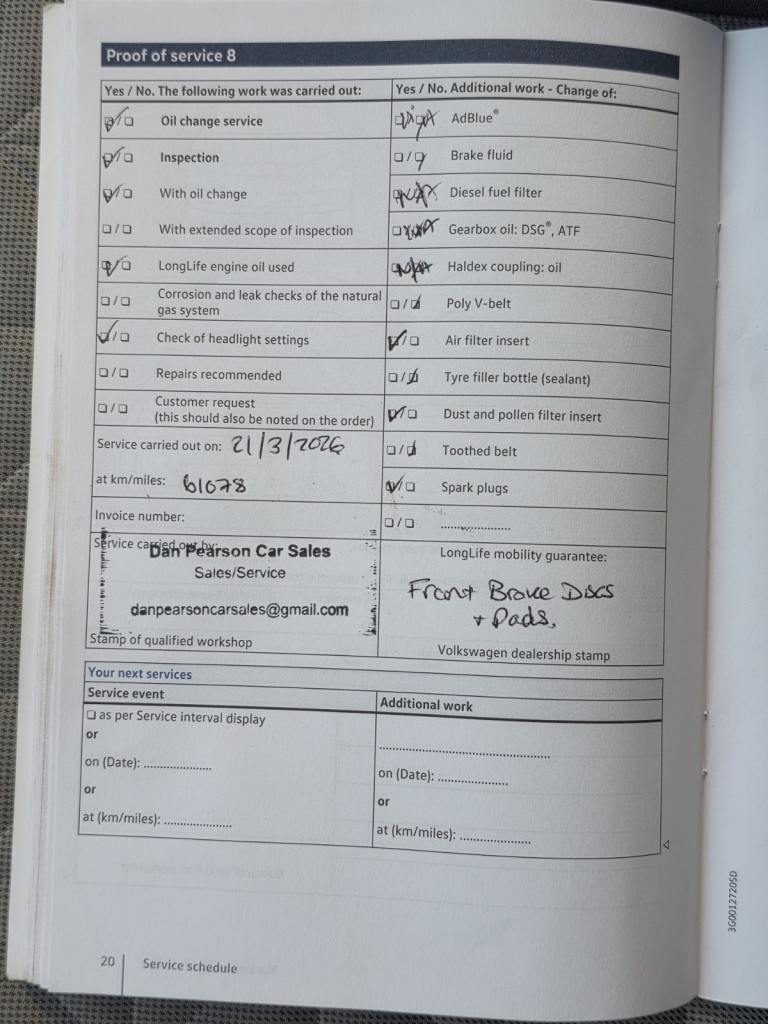 Proof of service 8
Yes / No. The following work was carried out:
☑/☐ Oil change service
☑/☐ Inspection
☑/☐ With oil change
☐/☐ With extended scope of inspection
☑/☐ LongLife engine oil used
☐/☐ Corrosion and leak checks of the natural
gas system
☑/☐ Check of headlight settings
☐/☐ Repairs recommended
☐/☐ Customer request
(this should also be noted on the order)
Service carried out on: 21/3/2026
at km/miles: 61078
Invoice number:
Service carried out by:
Dan Pearson Car Sales
Sales/Service
danpearsoncarsales@gmail.com
Stamp of qualified workshop
Yes / No. Additional work - Change of:
AdBlue®
☐/☑ Brake fluid
Diesel fuel filter
Gearbox oil: DSG®, ATF
Haldex coupling: oil
☐/☑ Poly V-belt
☑/☐ Air filter insert
☐/☑ Tyre filler bottle (sealant)
☑/☐ Dust and pollen filter insert
☐/☑ Toothed belt
☑/☐ Spark plugs
☐/☐ ..................
LongLife mobility guarantee:
Front Brake Discs
+ Pads,
Volkswagen dealership stamp
Your next services
Service event
☐ as per Service interval display
or
on (Date): ..................
or
at (km/miles): ..................
Additional work
..................
on (Date): ..................
or
at (km/miles): ..................
20 Service schedule
3G0012720SD